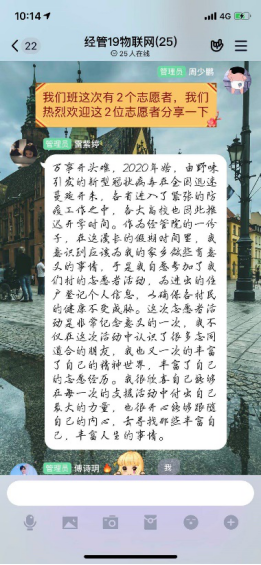 10:14
4G
22
经管19物联网(25)
25人在线
管理员 周少鹏
我们班这次有2个志愿者，我们
热烈欢迎这2位志愿者分享一下
管理员 雷紫婷
万事开头难，2020年始，由野味
引发的新型冠状病毒在全国迅速
蔓延开来，各省进入了紧张的防
疫工作之中，各大高校也因此推
迟开学时间。作为经管院的一份
子，在这漫长的假期时间里，我
意识到应该为我的家乡做些有意
义的事情，于是我自愿参加了我
们村的志愿者活动，为进出的住
户登记个人信息，以确保各村民
的健康不受威胁。这次志愿者活
动是非常纪念意义的一次，我不
仅在这次活动中认识了很多志同
道合的朋友，我也又一次的丰富
了自己的精神世界，丰富了自己
的志愿经历。我很欣喜自己能够
在每一次的支援活动中付出自己
最大的力量，也很开心能够跟随
自己的内心，去寻找那些丰富自
己，丰富人生的事情。
管理员 傅诗玥
我